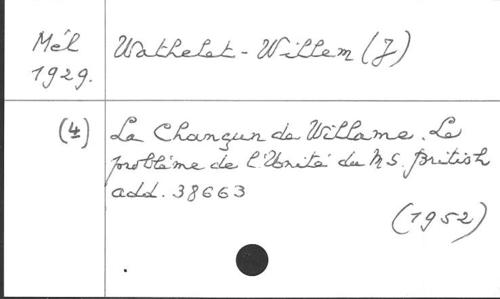 Mél
1929.
Wathelet-Willem (J)
(4) La Chançun de Willame. Le
problème de l'Unité du M S. British
add. 38663
(1952)